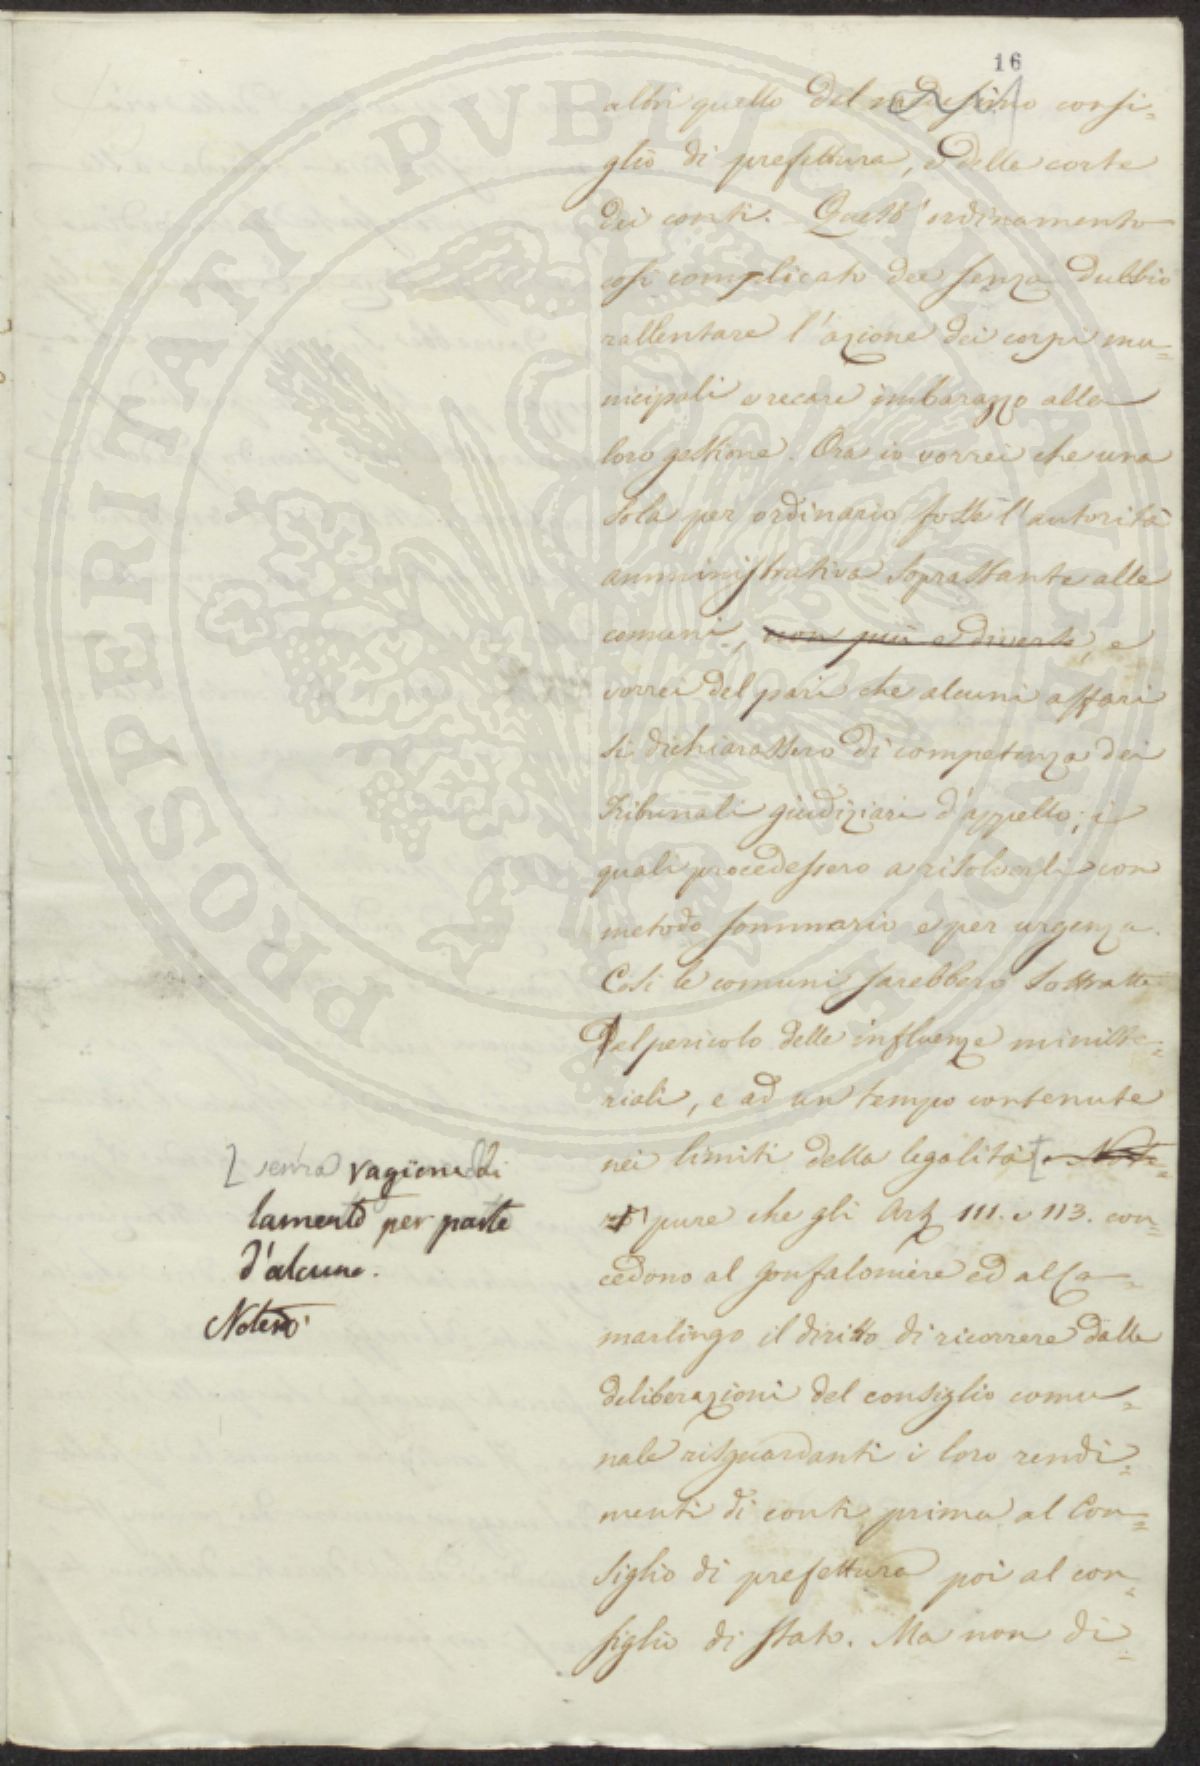 16
altri quello del medesimo consi=
glio di prefettura, e della corte
dei conti. Quest'ordinamento
così complicato dee senza dubbio
rallentare l'azione dei corpi mu=
nicipali e recare imbarazzo alla
loro gestione. Ora io vorrei che una
sola per ordinario fosse l'autorità
amministrativa soprastante alle
comuni, non più e diverse, e
vorrei del pari che alcuni affari
si dichiarassero di competenza dei
Tribunali giudiziari d'appello; i
quali procedessero a risolverli con
metodo sommario e per urgenza.
Così le comuni sarebbero sottratte
dal pericolo delle influenze ministe=
riali, e ad un tempo contenute
nei limiti della legalità. Note=
rò pure che gli Art. 111. e 113. con=
cedono al gonfaloniere ed al Ca=
marlingo il diritto di ricorrere dalle
deliberazioni del consiglio comu=
nale risguardanti i loro rendi=
menti di conti prima al Con=
siglio di prefettura poi al con=
siglio di stato. Ma non di=
senza ragione di
lamento per parte
d'alcuno.
Noterò
PROSPERITATI PVBLICAE AVGENDAE